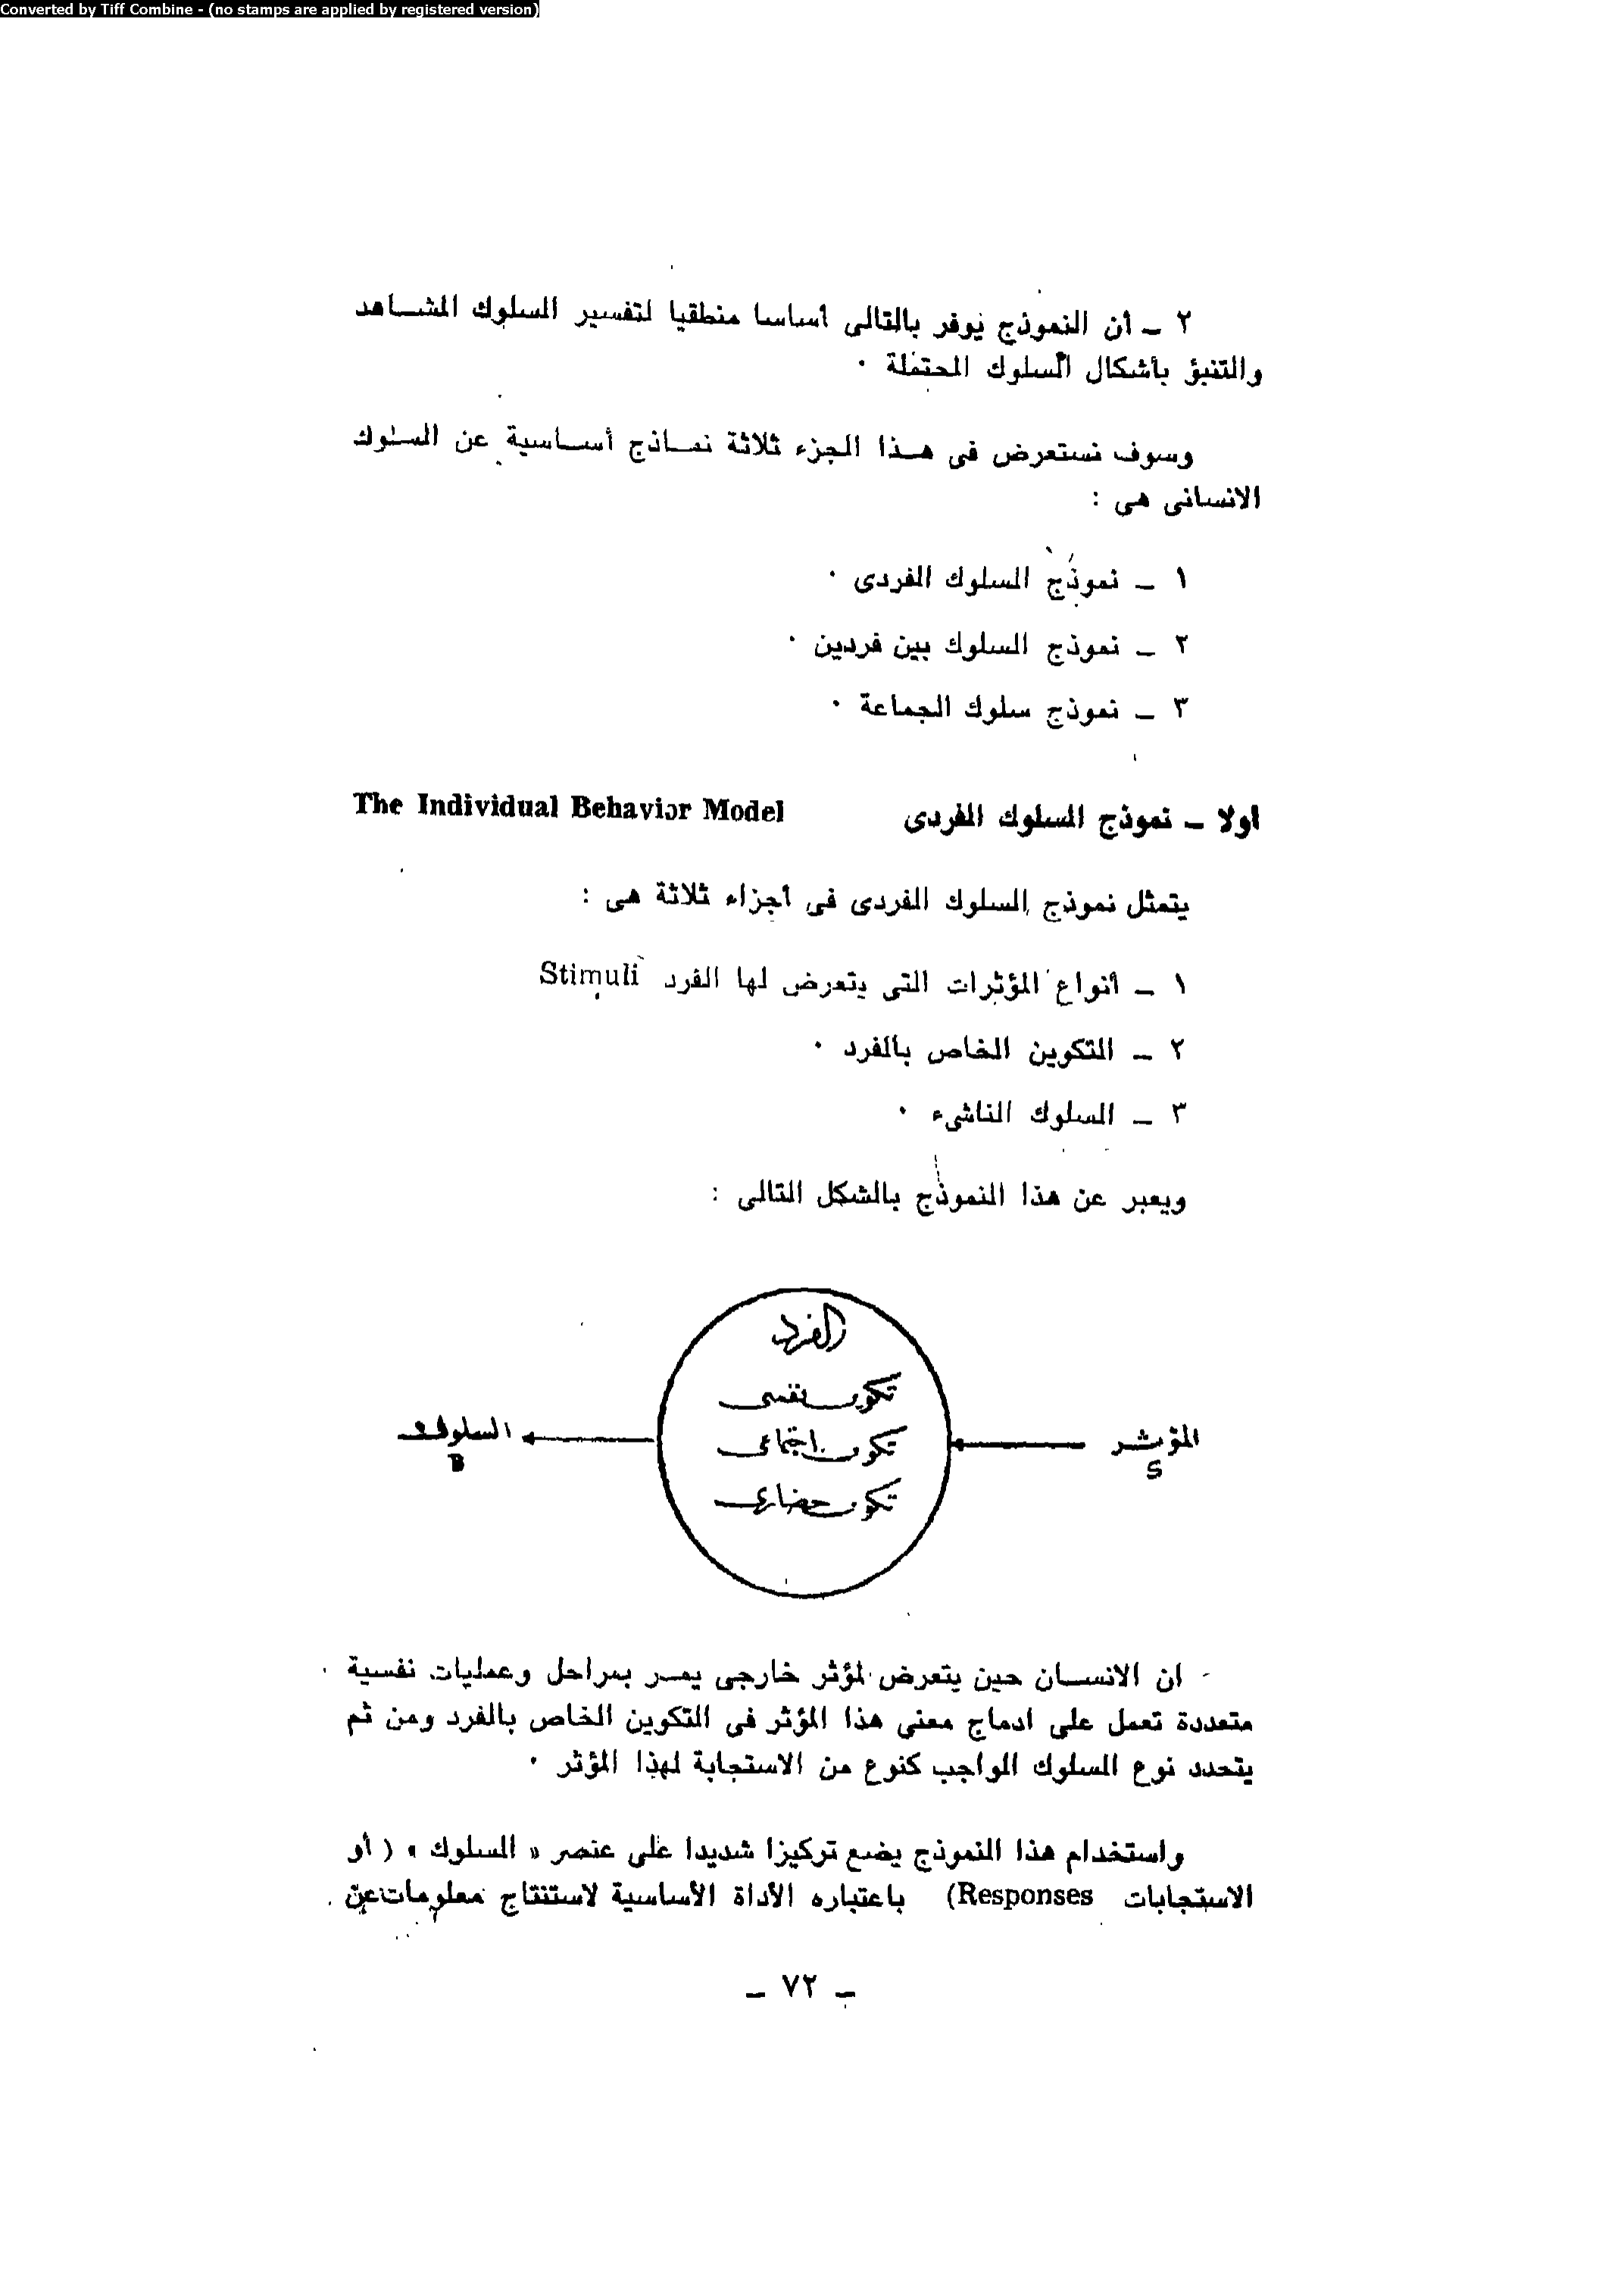 Converted by Tiff Combine - (no stamps are applied by registered version)
٢ ـ أن النموذج يوفر بالتالى أساسا منطقيا لتفسير السلوك المشاهد
والتنبؤ بأشكال السلوك المحتملة ٠
وسوف نستعرض فى هذا الجزء ثلاثة نماذج أساسية عن السلوك
الانسانى هى :
١ ـ نموذج السلوك الفردى ٠
٢ ـ نموذج السلوك بين فردين ٠
٣ ـ نموذج سلوك الجماعة ٠
اولا ـ نموذج السلوك الفردى The Individual Behavior Model
يتمثل نموذج السلوك الفردى فى أجزاء ثلاثة هى :
١ ـ أنواع المؤثرات التى يتعرض لها الفرد Stimuli
٢ ـ التكوين الخاص بالفرد ٠
٣ ـ السلوك الناشىء ٠
ويعبر عن هذا النموذج بالشكل التالى :
الفرد
تكوين نفسى
تكوين اجتماعى
تكوين حضارى
المؤثر
S
السلوك
B
ان الانسان حين يتعرض لمؤثر خارجى يمر بمراحل وعمليات نفسية
متعددة تعمل على ادماج معنى هذا المؤثر فى التكوين الخاص بالفرد ومن ثم
يتحدد نوع السلوك الواجب كنوع من الاستجابة لهذا المؤثر ٠
واستخدام هذا النموذج يضع تركيزا شديدا على عنصر « السلوك » ( أو
الاستجابات Responses) باعتباره الأداة الأساسية لاستنتاج معلومات عن
ـ ٧٢ ـ